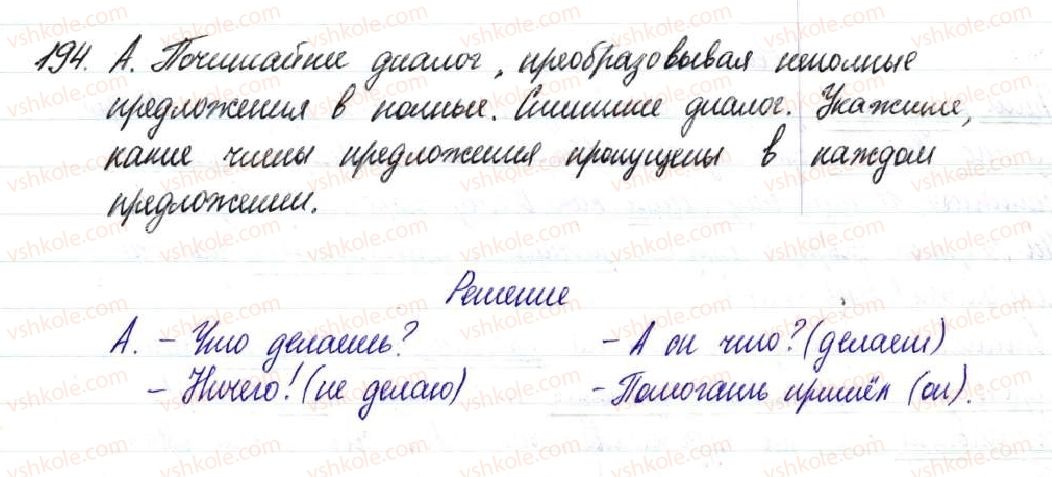 194. А. Почитайте диалог, преобразовывая неполные
предложения в полные. Спишите диалог. Укажите,
какие члены предложения пропущены в каждом
предложении.
Решение
А. – Что делаешь?
– Ничего! (не делаю)
– А он что? (делает)
– Помогать пришёл (он).
vshkole.com